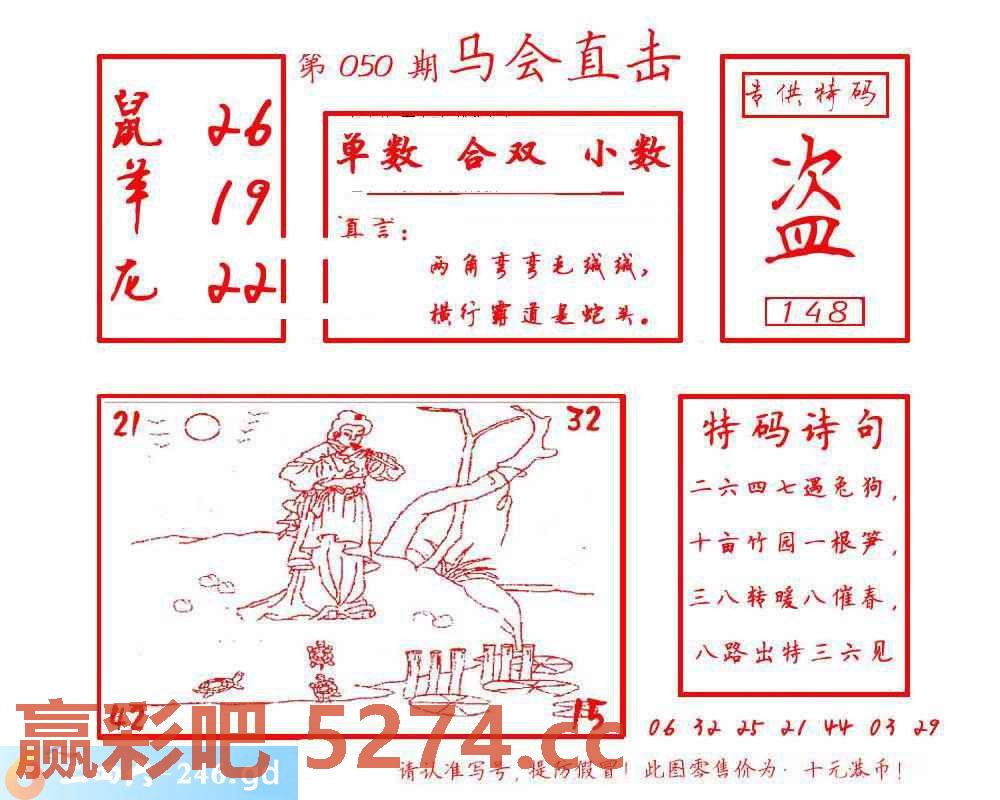 第 050 期 马会直击
鼠 26
羊 19
龙 22
单数 合双 小数
直言：
两角弯弯毛绒绒，
横行霸道是蛇头。
专供特码
盗
148
21
32
42
15
特码诗句
二六四七遇兔狗，
十亩竹园一根笋，
三八转暖八催春，
八路出特三六见
06 32 25 21 44 03 29
赢彩吧 5274.cc
-246.gd
请认准写号，提防假冒！此图零售价为：十元港币！